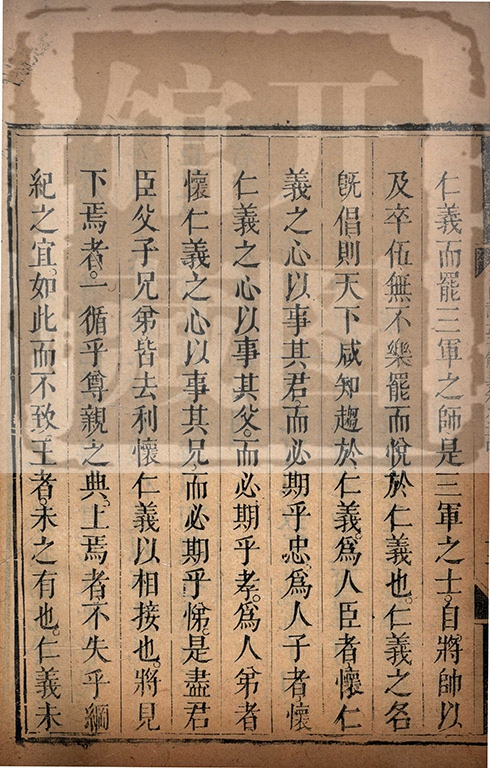 仁義而罷三軍之師是三軍之士。自將帥以
及卒伍無不樂罷而悅於仁義也。仁義之名
旣倡則天下咸知趨於仁義。爲人臣者懷仁
義之心以事其君。而必期乎忠。爲人子者懷
仁義之心以事其父。而必期乎孝。爲人弟者
懷仁義之心以事其兄。而必期乎悌。是盡君
臣父子兄弟皆去利懷仁義以相接也。將見
下焉者。一循乎尊親之典。上焉者不失乎綱
紀之宜。如此而不致王者。未之有也。仁義未